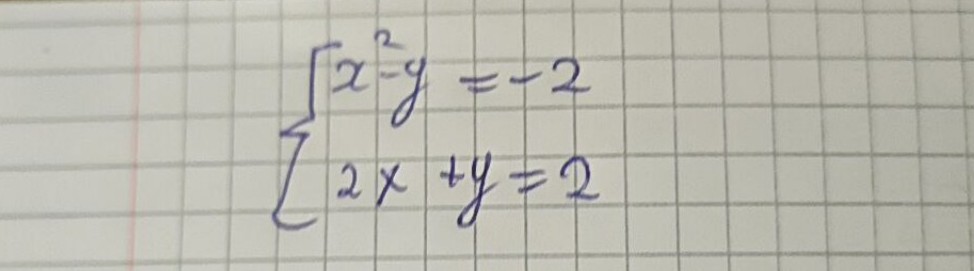 x²-y = -2
2x + y = 2